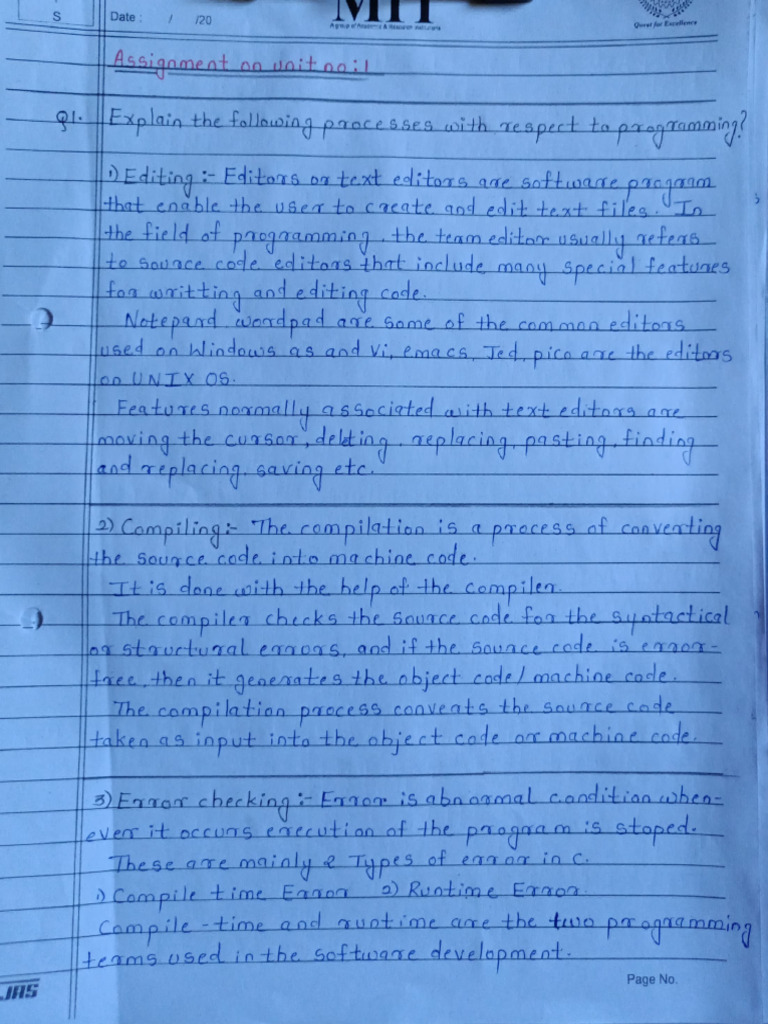 S
Date : / /20
MIT
A group of Academic & Research Institutions
Quest for Excellence
Assignment on unit no:1
Q1. Explain the following processes with respect to programming?
1) Editing :- Editors or text editors are software program
that enable the user to create and edit text files. In
the field of programming, the team editor usually refers
to source code editors that include many special features
for writting and editing code.
Notepard wordpad are some of the common editors
used on Windows as and Vi, emacs, Jed, pico are the editors
on UNIX OS.
Features normally associated with text editors are
moving the cursor, deleting, replacing, pasting, finding
and replacing, saving etc.
2) Compiling :- The compilation is a process of converting
the source code into machine code.
It is done with the help of the compiler.
The compiler checks the source code for the syntactical
or structural errors, and if the source code is error-
free, then it generates the object code/machine code.
The compilation process conveats the source code
taken as input into the object code or machine code.
3) Error checking :- Error is abnormal condition when-
ever it occurs execution of the program is stoped.
These are mainly 2 Types of error in c.
1) Compile time Error 2) Runtime Error.
Compile-time and runtime are the two programming
terms used in the software development.
JAS
Page No.